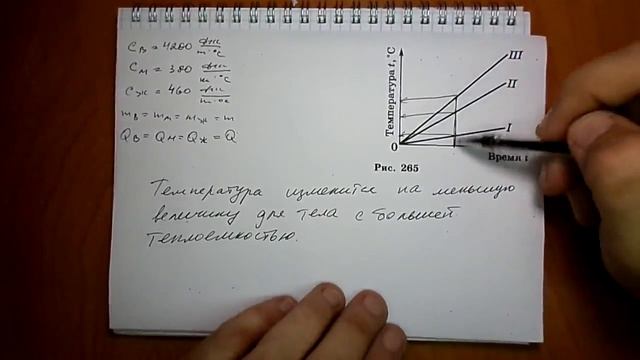 Cв = 4200 Дж/кг·°C
Cм = 380 Дж/кг·°C
Cж = 460 Дж/кг·°C
mв = mм = mж = m
Qв = Qм = Qж = Q
Температура t, °C
III
II
I
0
Время t
Рис. 265
Температура изменится на меньшую
величину для тела с большей
теплоемкостью.